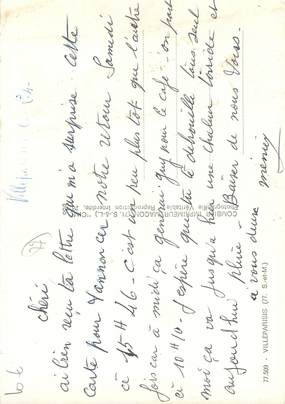 Villeparisis
chéri
ai bien reçu ta lettre qui m'a surprise cette
carte pour t'annoncer notre retour Samedi
à 15H46 - C'est un peu plus tot que l'autre
fois car à midi ça gênerai guy pour le café - on part
à 10H10 - J'espère que tu te débrouille tous seul
moi ça va jusqu'à hier une chaleur torride et
aujourd'hui pluie Baiser de nous Tous.
a vous deux
mémé
COMBIER IMPRIMEUR MACON (71. S.-&-L.) "CIM"
Reproduction Interdite
77.509 - VILLEPARISIS (77. S.-et-M.)
(77)